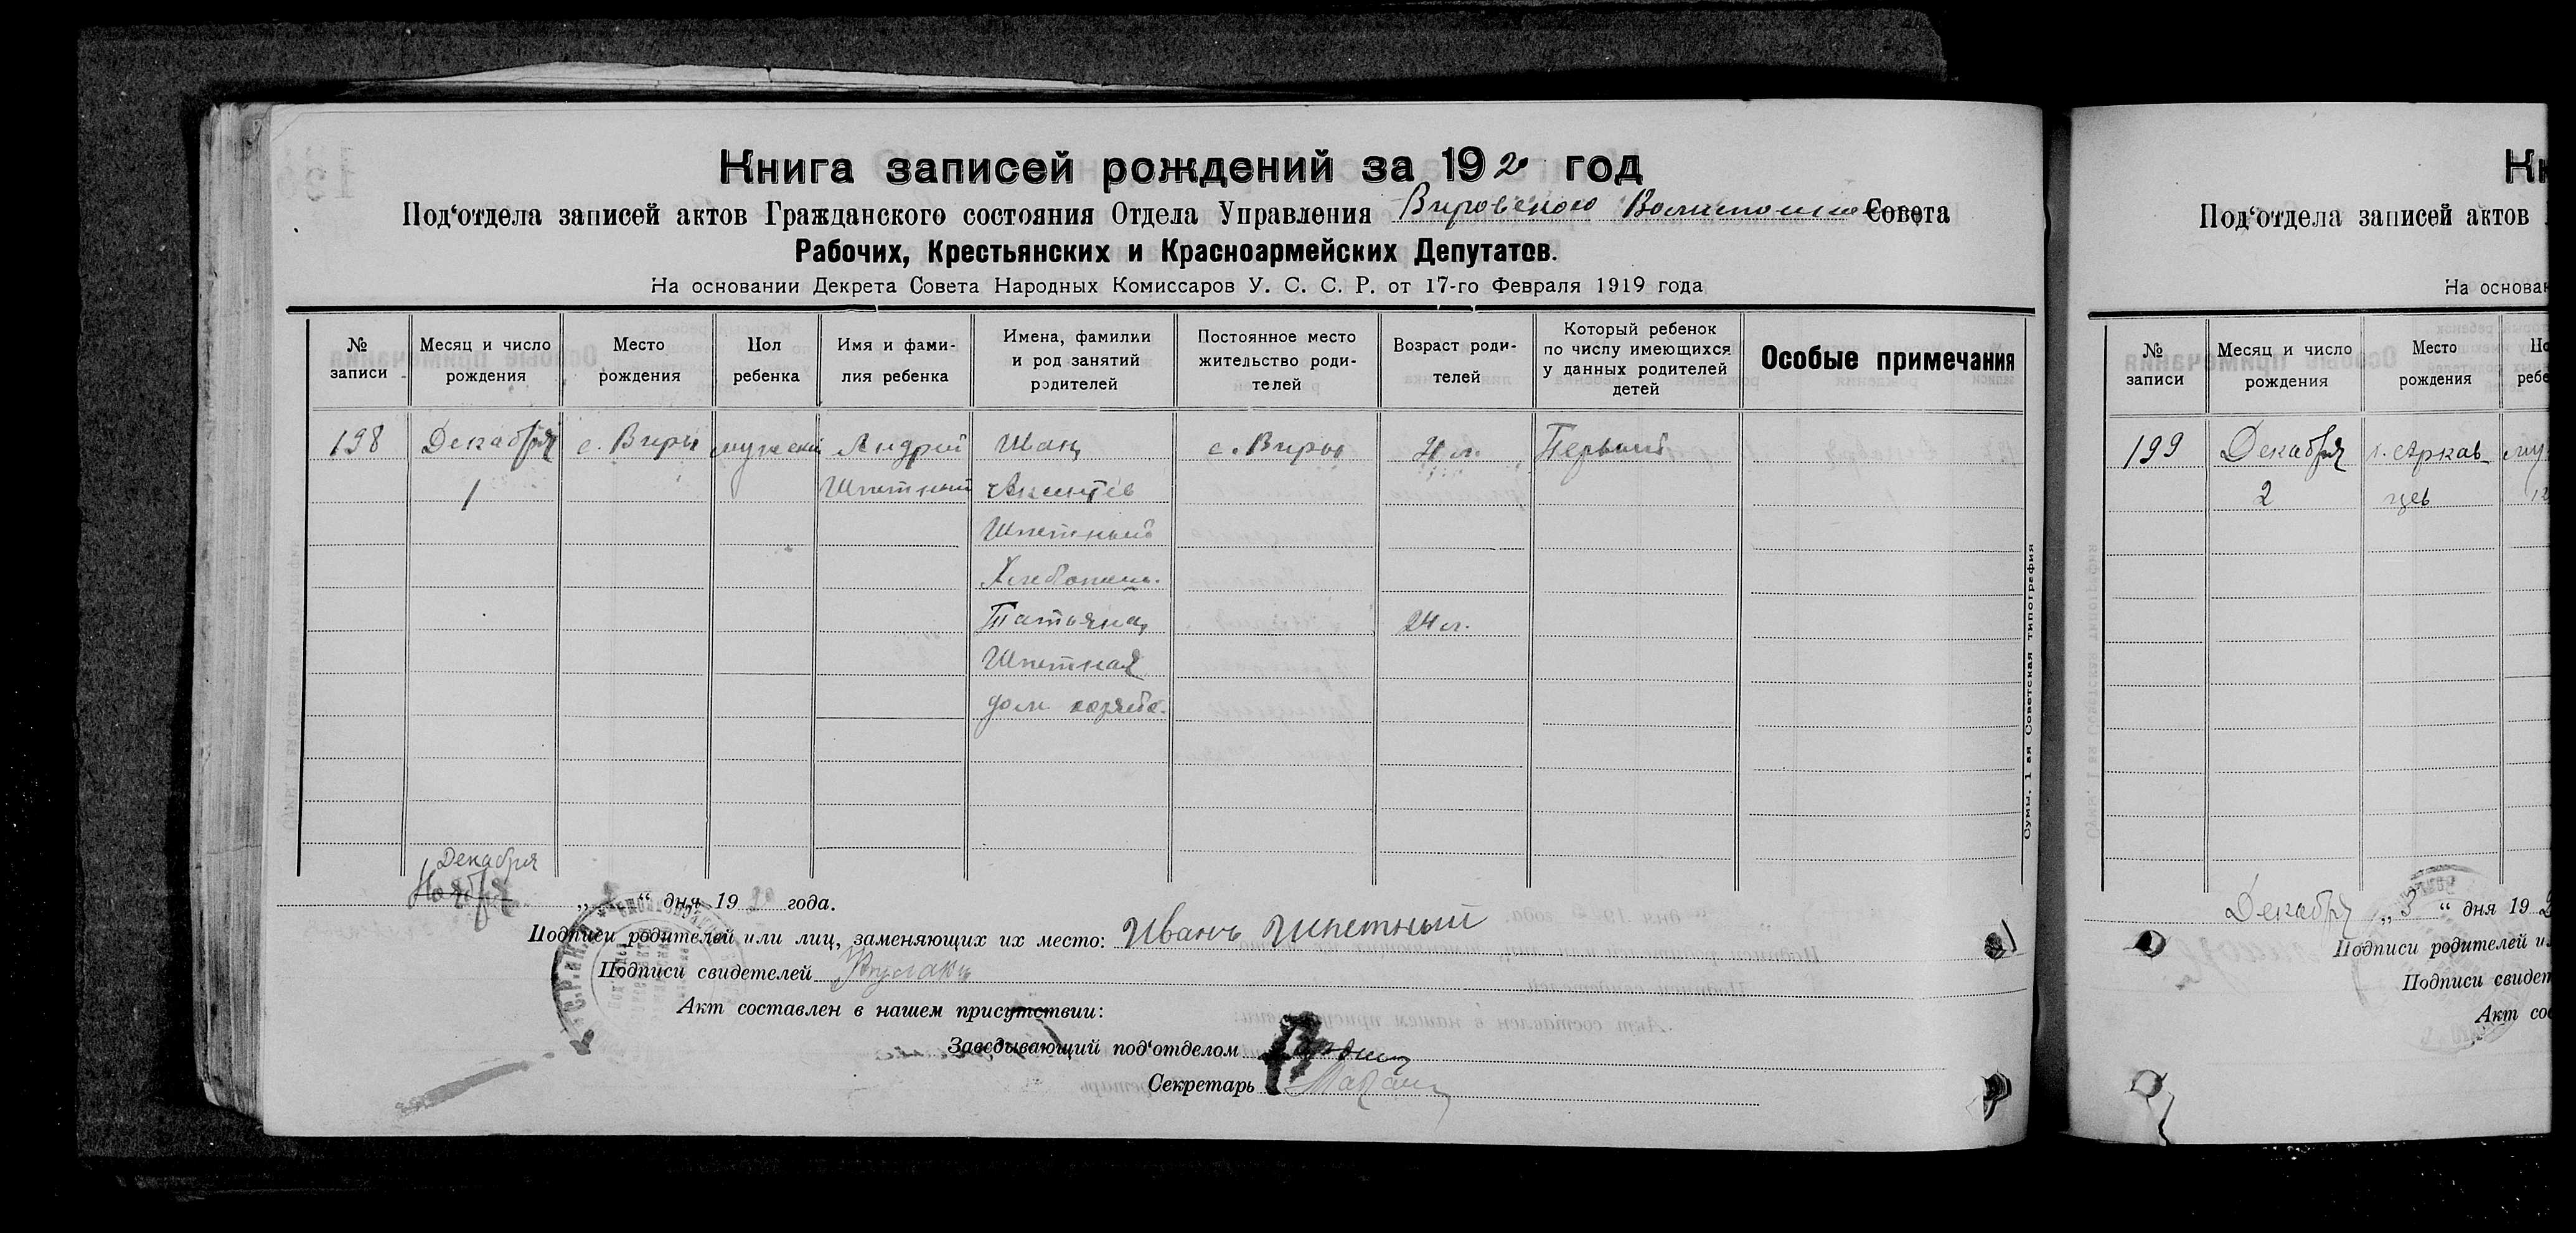 Книга записей рождений за 1920 год
Под‘отдела записей актов Гражданского состояния Отдела Управления Вировского Совета
Рабочих, Крестьянских и Красноармейских Депутатов.
На основании Декрета Совета Народных Комиссаров У. С. С. Р. от 17-го Февраля 1919 года
№ записи
Месяц и число рождения
Место рождения
Пол ребенка
Имя и фами-
лия ребенка
Имена, фамилии
и род занятий
родителей
Постоянное место
жительство роди-
телей
Возраст роди-
телей
Который ребенок
по числу имеющихся
у данных родителей
детей
Особые примечания
198 Декабря с. Виры мужской Андрей Иван с. Виры Первый
1 Шпетный
Шпетный
Хлебопашь.
Татьяна 24 л.
Шпетная
дом. хозяйс.
Декабря
Ноября „ “ дня 1920 года.
Подписи родителей или лиц, заменяющих их место: Иванъ Шпетный
Подписи свидетелей
Акт составлен в нашем присутствии:
Заведывающий под‘отделом
Секретарь
Сумы, 1-ая Советская типография
Кн
Под‘отдела записей актов
На основан
№ записи
Месяц и число рождения
Место рождения
По
ребе
199 Декабря х. Аркав му
2 цев
Декабря „3“ дня 192
Подписи родителей и
Подписи свидет
Акт со